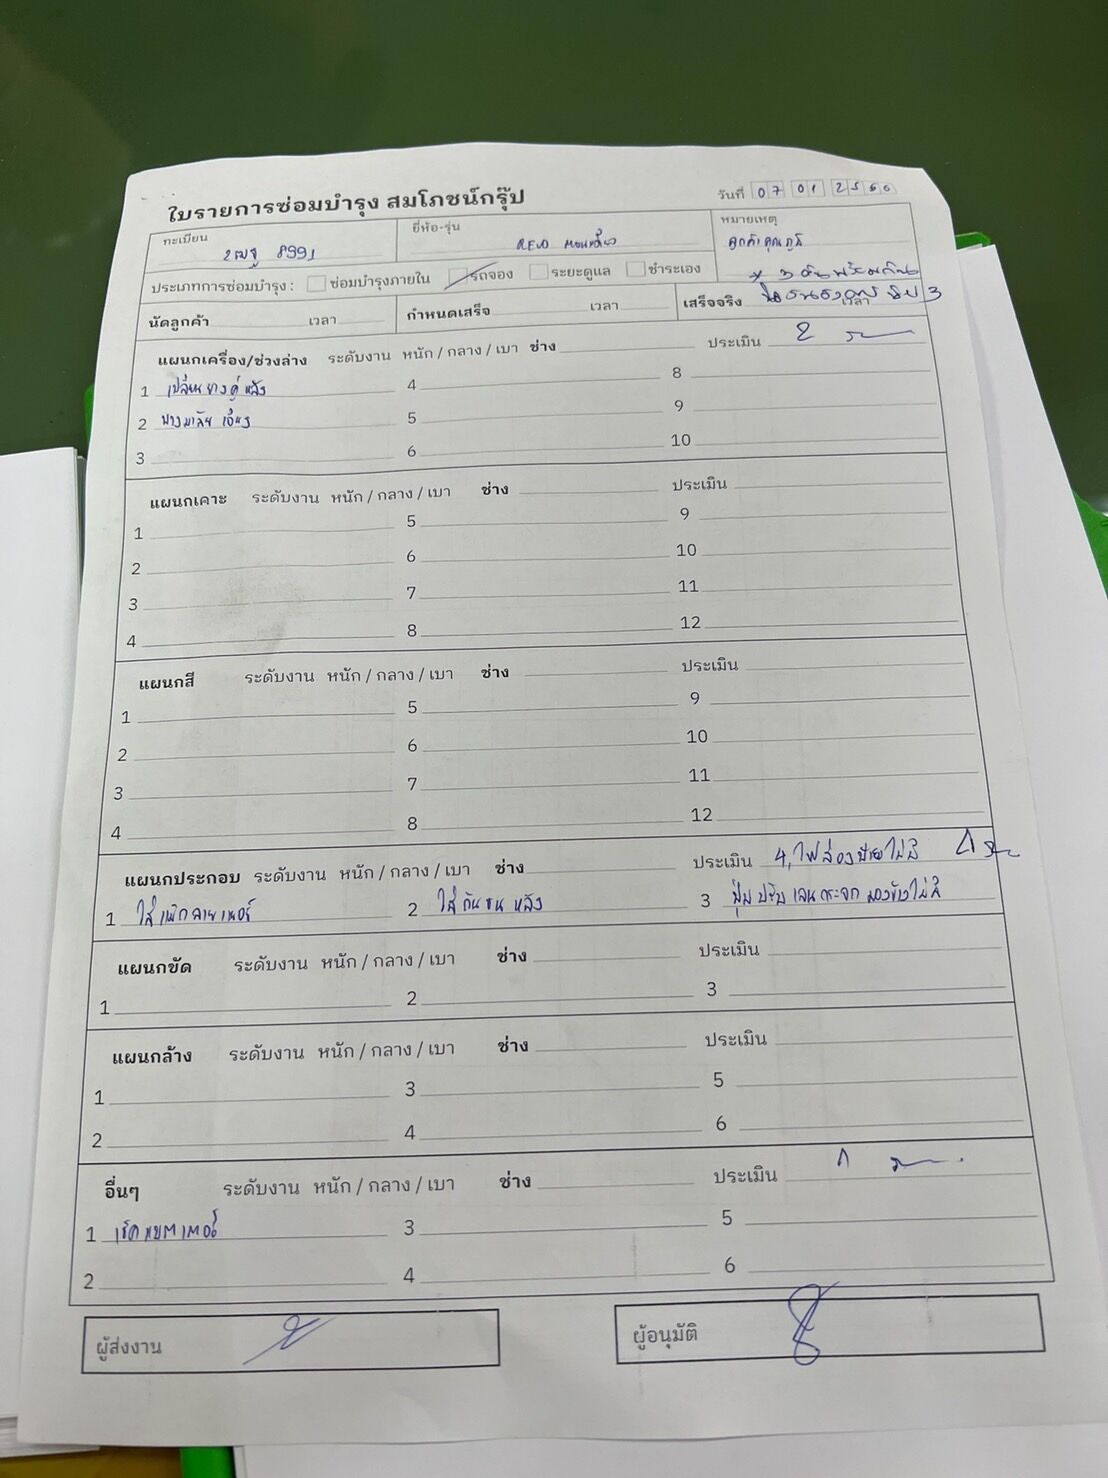 ใบรายการซ่อมบำรุง สมโภชน์กรุ๊ป
วันที่ 07 01 25
ทะเบียน 8991
ยี่ห้อ-รุ่น REVO ตอนเดียว
หมายเหตุ
ลูกค้าคุณภูมิ
ประเภทการซ่อมบำรุง : ซ่อมบำรุงภายใน รถจอง ระยะดูแล ชำระเอง
นัดลูกค้า เวลา
กำหนดเสร็จ เวลา
เสร็จจริง เวลา
แผนกเครื่อง/ช่วงล่าง ระดับงาน หนัก / กลาง / เบา ช่าง ประเมิน 2
1 เปลี่ยนยางคู่หลัง 4 8
2 พวงมาลัยเอียง 5 9
3 6 10
แผนกเคาะ ระดับงาน หนัก / กลาง / เบา ช่าง ประเมิน
1 5 9
2 6 10
3 7 11
4 8 12
แผนกสี ระดับงาน หนัก / กลาง / เบา ช่าง ประเมิน
1 5 9
2 6 10
3 7 11
4 8 12
แผนกประกอบ ระดับงาน หนัก / กลาง / เบา ช่าง ประเมิน 4, ไฟส่องป้ายไม่มี
1 ใส่ 2 ใส่กันชนหลัง 3 ปุ่มปรับเลนกระจกมองข้างไม่มี
แผนกขัด ระดับงาน หนัก / กลาง / เบา ช่าง ประเมิน
1 2 3
แผนกล้าง ระดับงาน หนัก / กลาง / เบา ช่าง ประเมิน
1 3 5
2 4 6
อื่นๆ ระดับงาน หนัก / กลาง / เบา ช่าง ประเมิน
1 เช็คแบตเตอรี่ 3 5
2 4 6
ผู้ส่งงาน
ผู้อนุมัติ